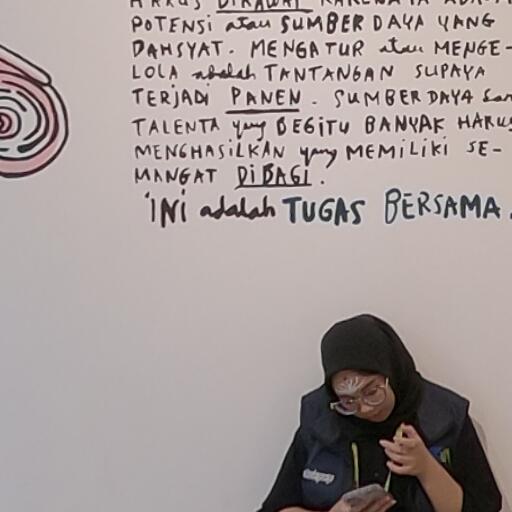 HARUS DIRAWAT KARENA IA ADALAH
POTENSI atau SUMBER DAYA YANG
DAHSYAT. MENGATUR atau MENGE-
LOLA adalah TANTANGAN SUPAYA
TERJADI PANEN. SUMBER DAYA dan
TALENTA yang BEGITU BANYAK HARUS
MENGHASILKAN yang MEMILIKI SE-
MANGAT DIBAGI.
INI adalah TUGAS BERSAMA.